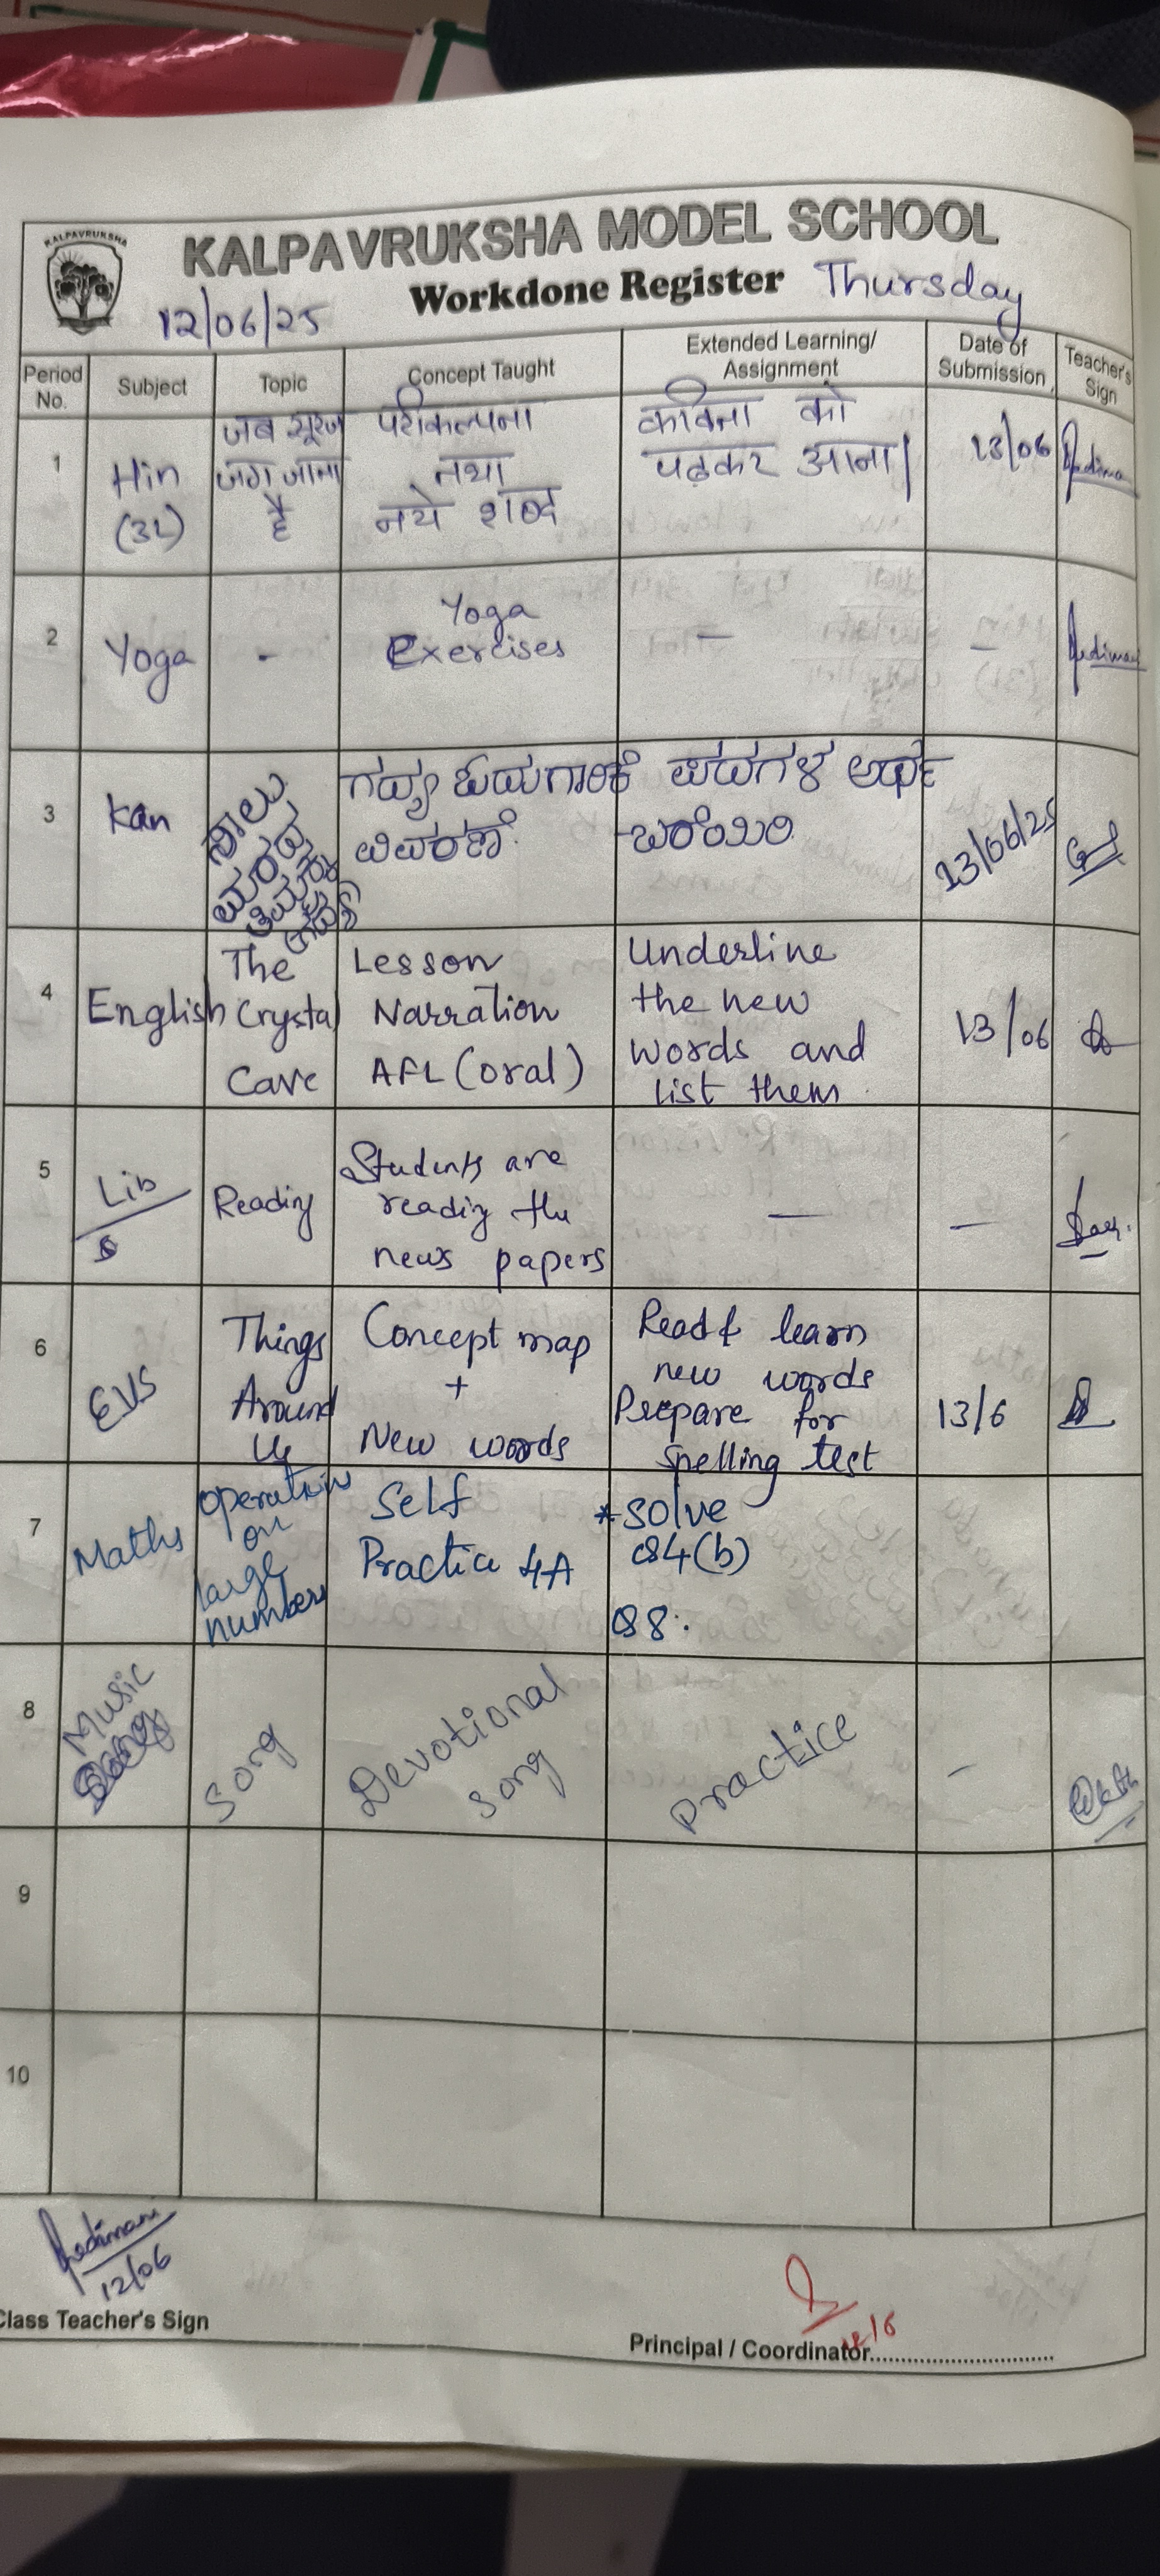 KALPAVRUKSHA
KALPAVRUKSHA MODEL SCHOOL
12/06/25 Workdone Register Thursday
Period No. Subject Topic Concept Taught Extended Learning/ Assignment Date of Submission Teacher's Sign
1 Hin (3L) जब सूरज जग जाता है परिकल्पना तथा नये शब्द कविता को पढ़कर आना। 13/06
2 Yoga - Yoga Exercises - -
3 Kan ಸಾಲು ಮರದ ತಿಮ್ಮಕ್ಕ ಗದ್ಯ ವಿವರಣೆ. ಪದಗಳ ಅರ್ಥ ಬರೆಯಿರಿ 13/06/25
4 English The Crystal Cave Lesson Narration AFL (oral) Underline the new words and list them. 13/06
5 Lib Reading Students are reading the news papers - -
6 EVS Things Around Us Concept map + New words Read & learn new words Prepare for spelling test 13/6
7 Maths operation on large numbers Self Practice 4A *solve Q4(b) Q8.
8 Music Song Devotional song Practice -
9
10
12/06
Class Teacher's Sign
Principal / Coordinator